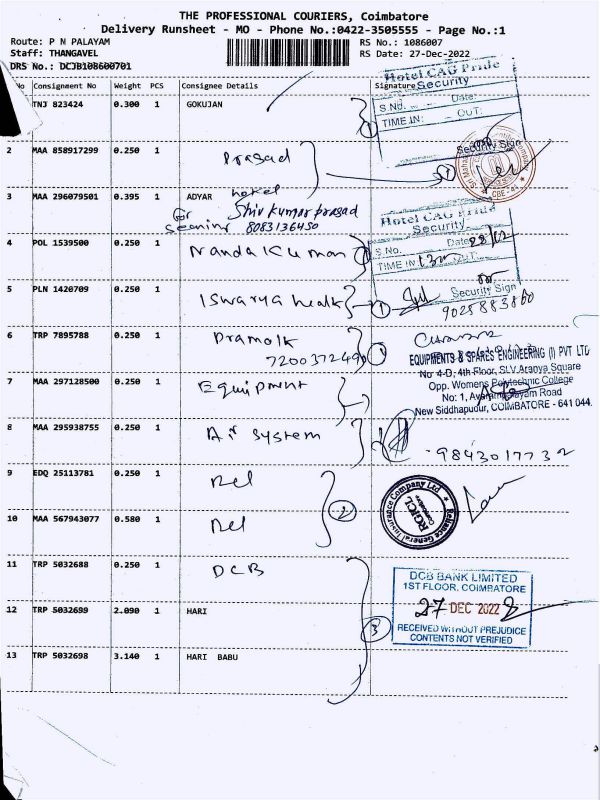 THE PROFESSIONAL COURIERS, Coimbatore
Delivery Runsheet - MO - Phone No.:0422-3505555 - Page No.:1
Route: P N PALAYAM
RS No.: 1086007
Staff: THANGAVEL
RS Date: 27-Dec-2022
DRS No.: DCJB108600701
No Consignment No Weight PCS Consignee Details Signature
TNJ 823424 0.300 1 GOKUJAN
Hotel CAG Pride
Security
S.No. Date:
TIME IN: OUT:
Security Sign
1
2 MAA 858917299 0.250 1 Prasad
1
CBE-44
3 MAA 296079501 0.395 1 ADYAR hotel
Shiv Kumar prasad
8083136450
Hotel CAG Pride
Security
S No. Date 28/12
TIME IN OUT:
Security Sign
4 POL 1539500 0.250 1 Nanda Kumar
5 PLN 1420709 0.250 1 Iswarya healt 1
9025883860
6 TRP 7895788 0.250 1 Pramolk
7200372490
1
EQUIPMENTS & SPARES ENGINEERING (I) PVT LTD
No 4-D, 4th Floor, SLV Aranya Square
Opp. Womens Polytechnic College
No: 1, Avarampalayam Road
New Siddhapudur, COIMBATORE - 641 044.
7 MAA 297128500 0.250 1 Equipment
8 MAA 295938755 0.250 1 Air System
9843017732
9 EDQ 25113781 0.250 1 Rel
2
Reliance General Insurance Company Ltd
RGICL
Coimbatore
10 MAA 567943077 0.580 1 Rel
11 TRP 5032688 0.250 1 DCB
DCB BANK LIMITED
1ST FLOOR, COIMBATORE
27 DEC 2022
RECEIVED WITHOUT PREJUDICE
CONTENTS NOT VERIFIED
12 TRP 5032699 2.090 1 HARI
3
13 TRP 5032698 3.140 1 HARI BABU